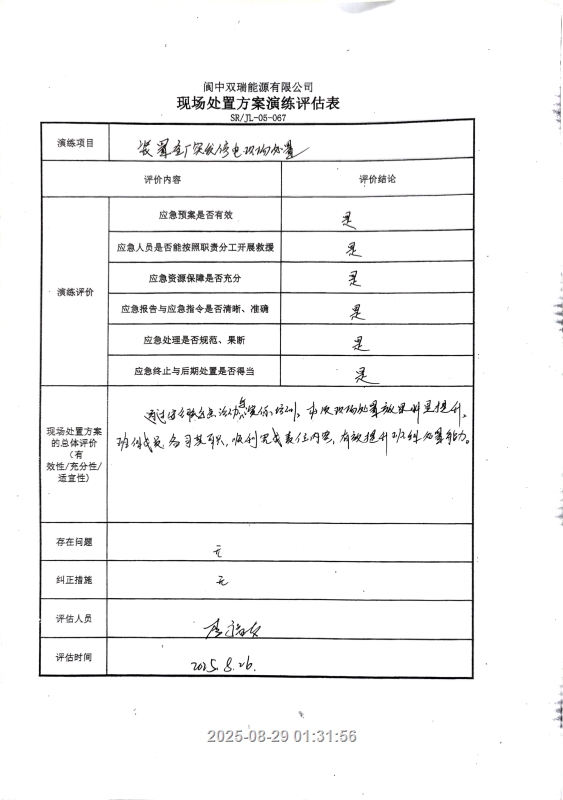 阆中双瑞能源有限公司
现场处置方案演练评估表
SR/JL-05-067
演练项目
装置全厂突发停电现场处置
评价内容 评价结论
演练评价
应急预案是否有效 是
应急人员是否能按照职责分工开展救援 是
应急资源保障是否充分 是
应急报告与应急指令是否清晰、准确 是
应急处理是否规范、果断 是
应急终止与后期处置是否得当 是
现场处置方案
的总体评价
(有
效性/充分性/
适宜性)
通过 培训,本次现场处置效果明显提升,
班组成员各司其职,顺利完成责任内容,有效提升班组处置能力。
存在问题 无
纠正措施 无
评估人员
评估时间 2025.8.26.
2025-08-29 01:31:56